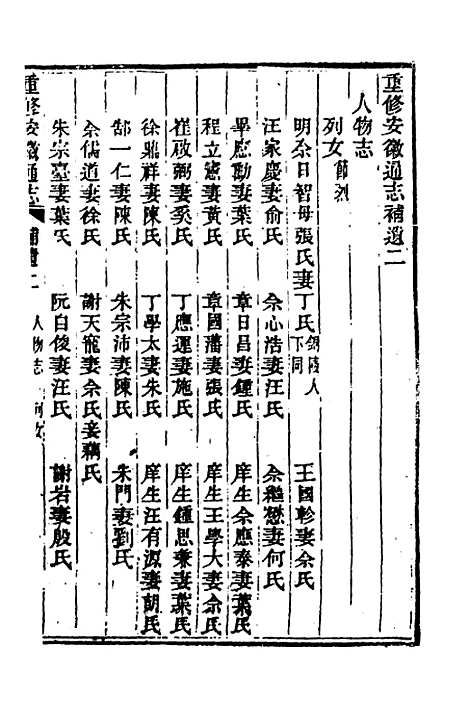 重修安徽通志補遺二
人物志
列女節烈
明佘日智母張氏妻丁氏銅陵人下同 王國軫妻佘氏
汪家慶妻俞氏 佘心浩妻汪氏 佘繼懋妻何氏
畢應勳妻葉氏 章日昌妻鍾氏 庠生佘應泰妻葉氏
程立憲妻黃氏 章國藩妻張氏 庠生王學大妻佘氏
崔啟弼妻奚氏 丁應運妻施氏 庠生鍾思兼妻葉氏
徐鼎祥妻陳氏 丁學太妻朱氏 庠生汪有源妻胡氏
郜一仁妻陳氏 朱宗沛妻陳氏 朱門妻劉氏
佘儒道妻徐氏 謝天寵妻佘氏妾蘇氏
朱宗臺妻葉氏 阮自俊妻汪氏 謝岩妻殷氏
重修安徽通志 補遺二 人物志 列女